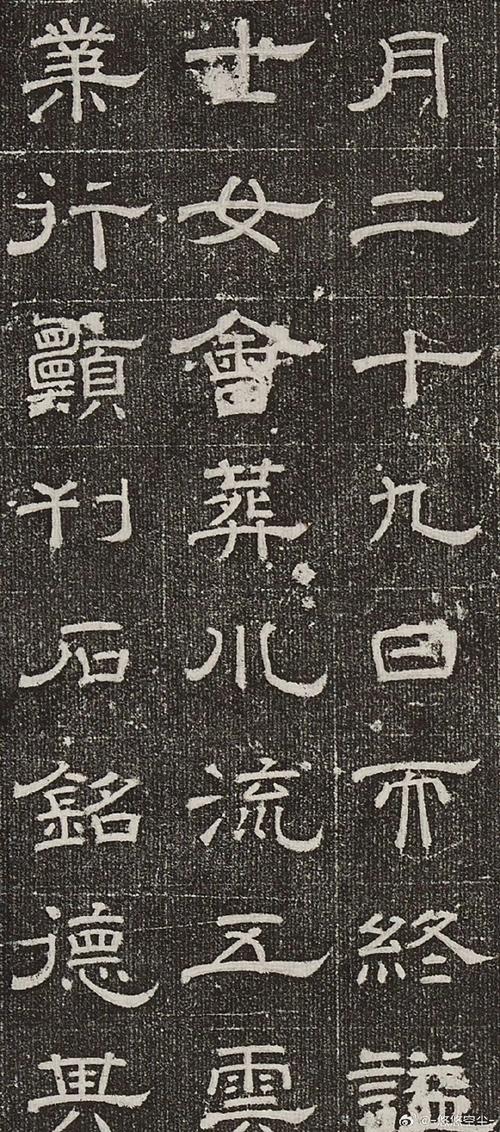 月二十九日而終
士女會葬川流五雲
業行顯刊石銘德其
@-悠悠空尘-